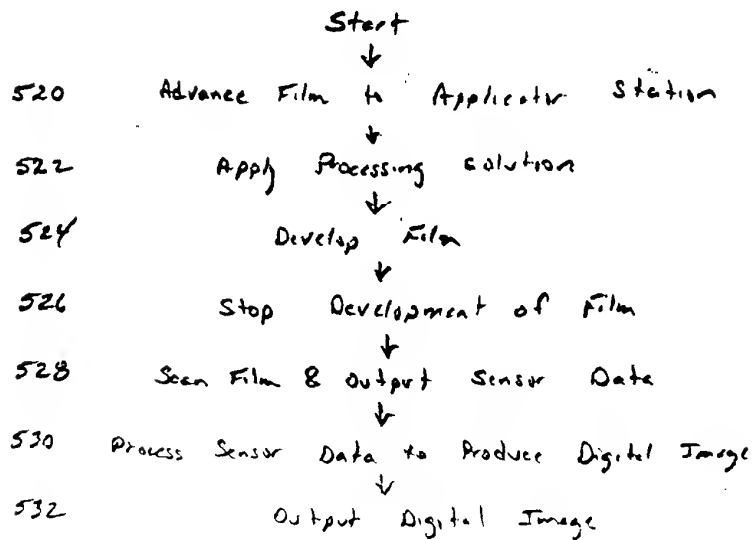 Start
520 Advance Film to Applicator Station
522 Apply Processing Solution
524 Develop Film
526 Stop Development of Film
528 Scan Film & Output Sensor Data
530 Process Sensor Data to Produce Digital Image
532 Output Digital Image